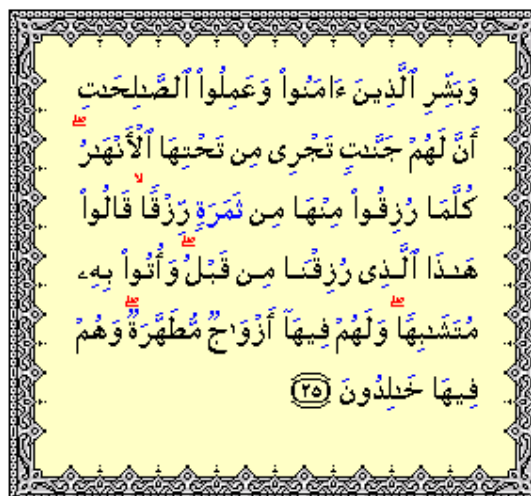 وَبَشِّرِ ٱلَّذِينَ ءَامَنُوا۟ وَعَمِلُوا۟ ٱلصَّـٰلِحَـٰتِ
أَنَّ لَهُمْ جَنَّـٰتٍ تَجْرِى مِن تَحْتِهَا ٱلْأَنْهَـٰرُ ۖ
كُلَّمَا رُزِقُوا۟ مِنْهَا مِن ثَمَرَةٍ رِّزْقًا ۙ قَالُوا۟
هَـٰذَا ٱلَّذِى رُزِقْنَا مِن قَبْلُ ۖ وَأُتُوا۟ بِهِۦ
مُتَشَـٰبِهًا ۖ وَلَهُمْ فِيهَآ أَزْوَٰجٌ مُّطَهَّرَةٌ ۖ وَهُمْ
فِيهَا خَـٰلِدُونَ ٢٥